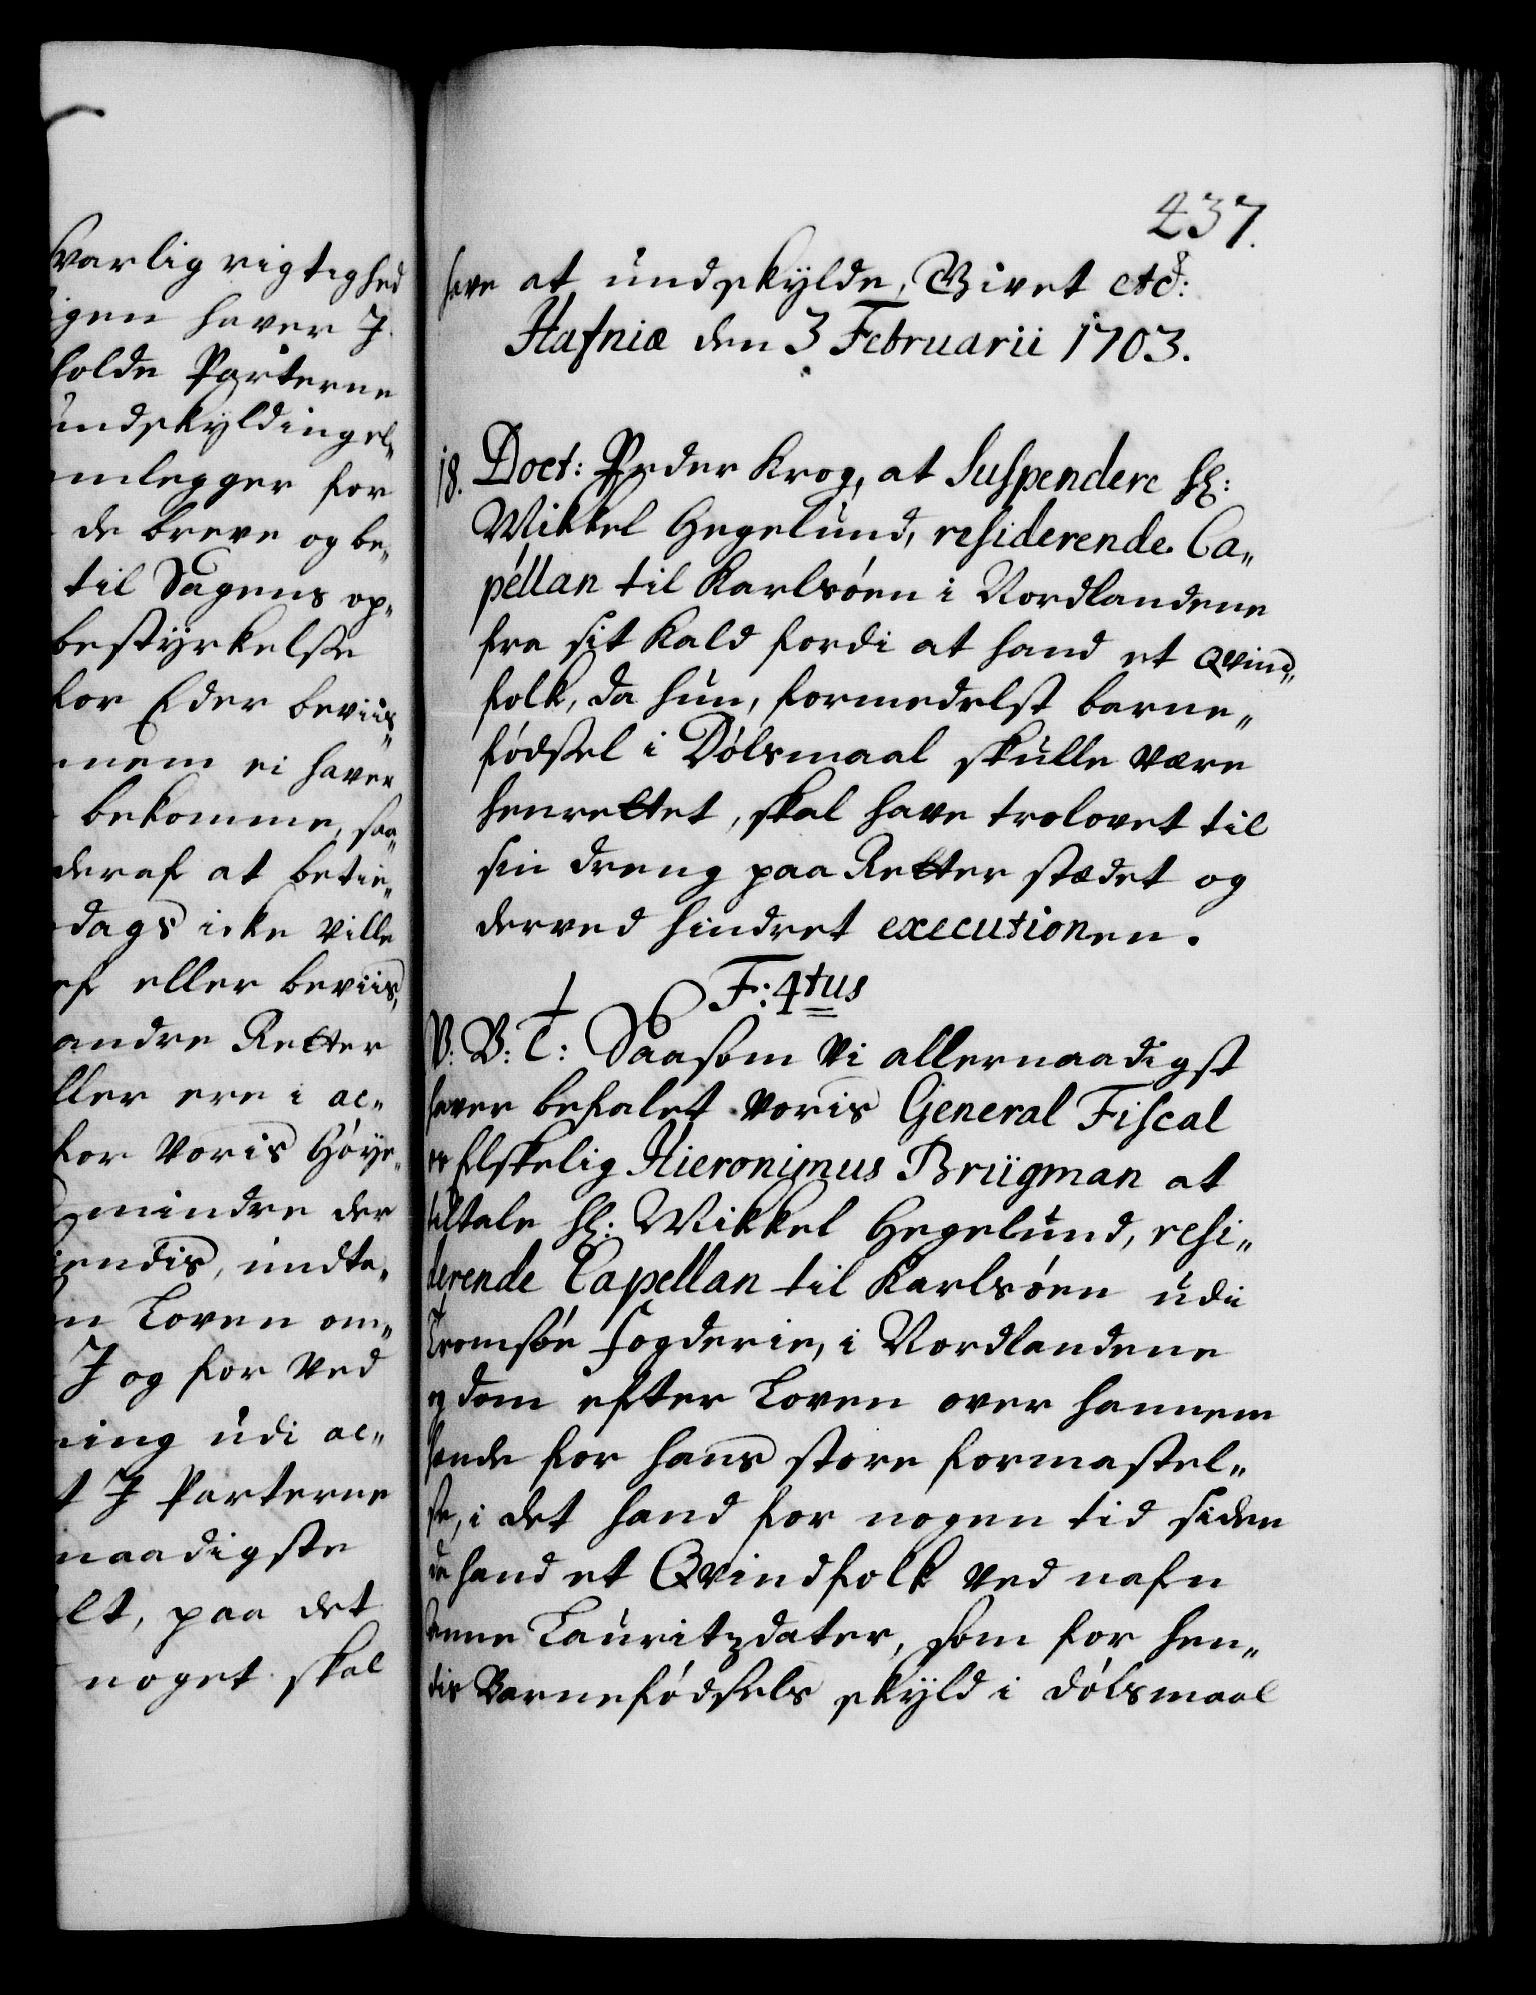 varlig rigtighed
igen haver I
holde Parterne
undskyldingel„
mlegger for
de breve og be„
til Sagens op„
bestyrkelse
for Eder beviis„
nem ei haver
bekomme, saa„
deraf at betie„
dags icke ville
ef eller beviis,
andre Retter
ller ere i al„
for Voris Høye„
mindre der
iendis, undta„
n Loven om„
I og for ved
ing udi al„
t I Parterne
naadigste
lt, paa det
noget skal
437.
have at undskylde, Givet etc:
Hafniæ den 3 Februarii 1703.
18. Doct: Peder Krog, at Suspendere Hr:
Mikkel Hegelund, residerende Ca„
pellan til Karlsøen i Nordlandene
fra sit Kald fordi at hand et qvind„
folk, da hun, formedelst barne„
fødsel i Dølsmaal skulle være
henrettet, skal have trolovet til
sin dreng paa Retter stædet og
derved hindret executionen.
F: 4tus
V. V: T: Saasom Vi allernaadigst
haver befalet Voris General Fiscal
os Elskelig Hieronimus Brügman at
tiltale Hr: Mikkel Hegelund, resi„
derende Capellan til Karlsøen udi
Tromsøe Fogderie, i Nordlandene
og dom efter Loven over hannem
hende for hans store formastel„
se, i det hand for nogen tid siden
da hand et Qvindfolk ved nafn
Anne Lauritzdater, som for hen„
dis Barnefødsels skyld i dølsmaal